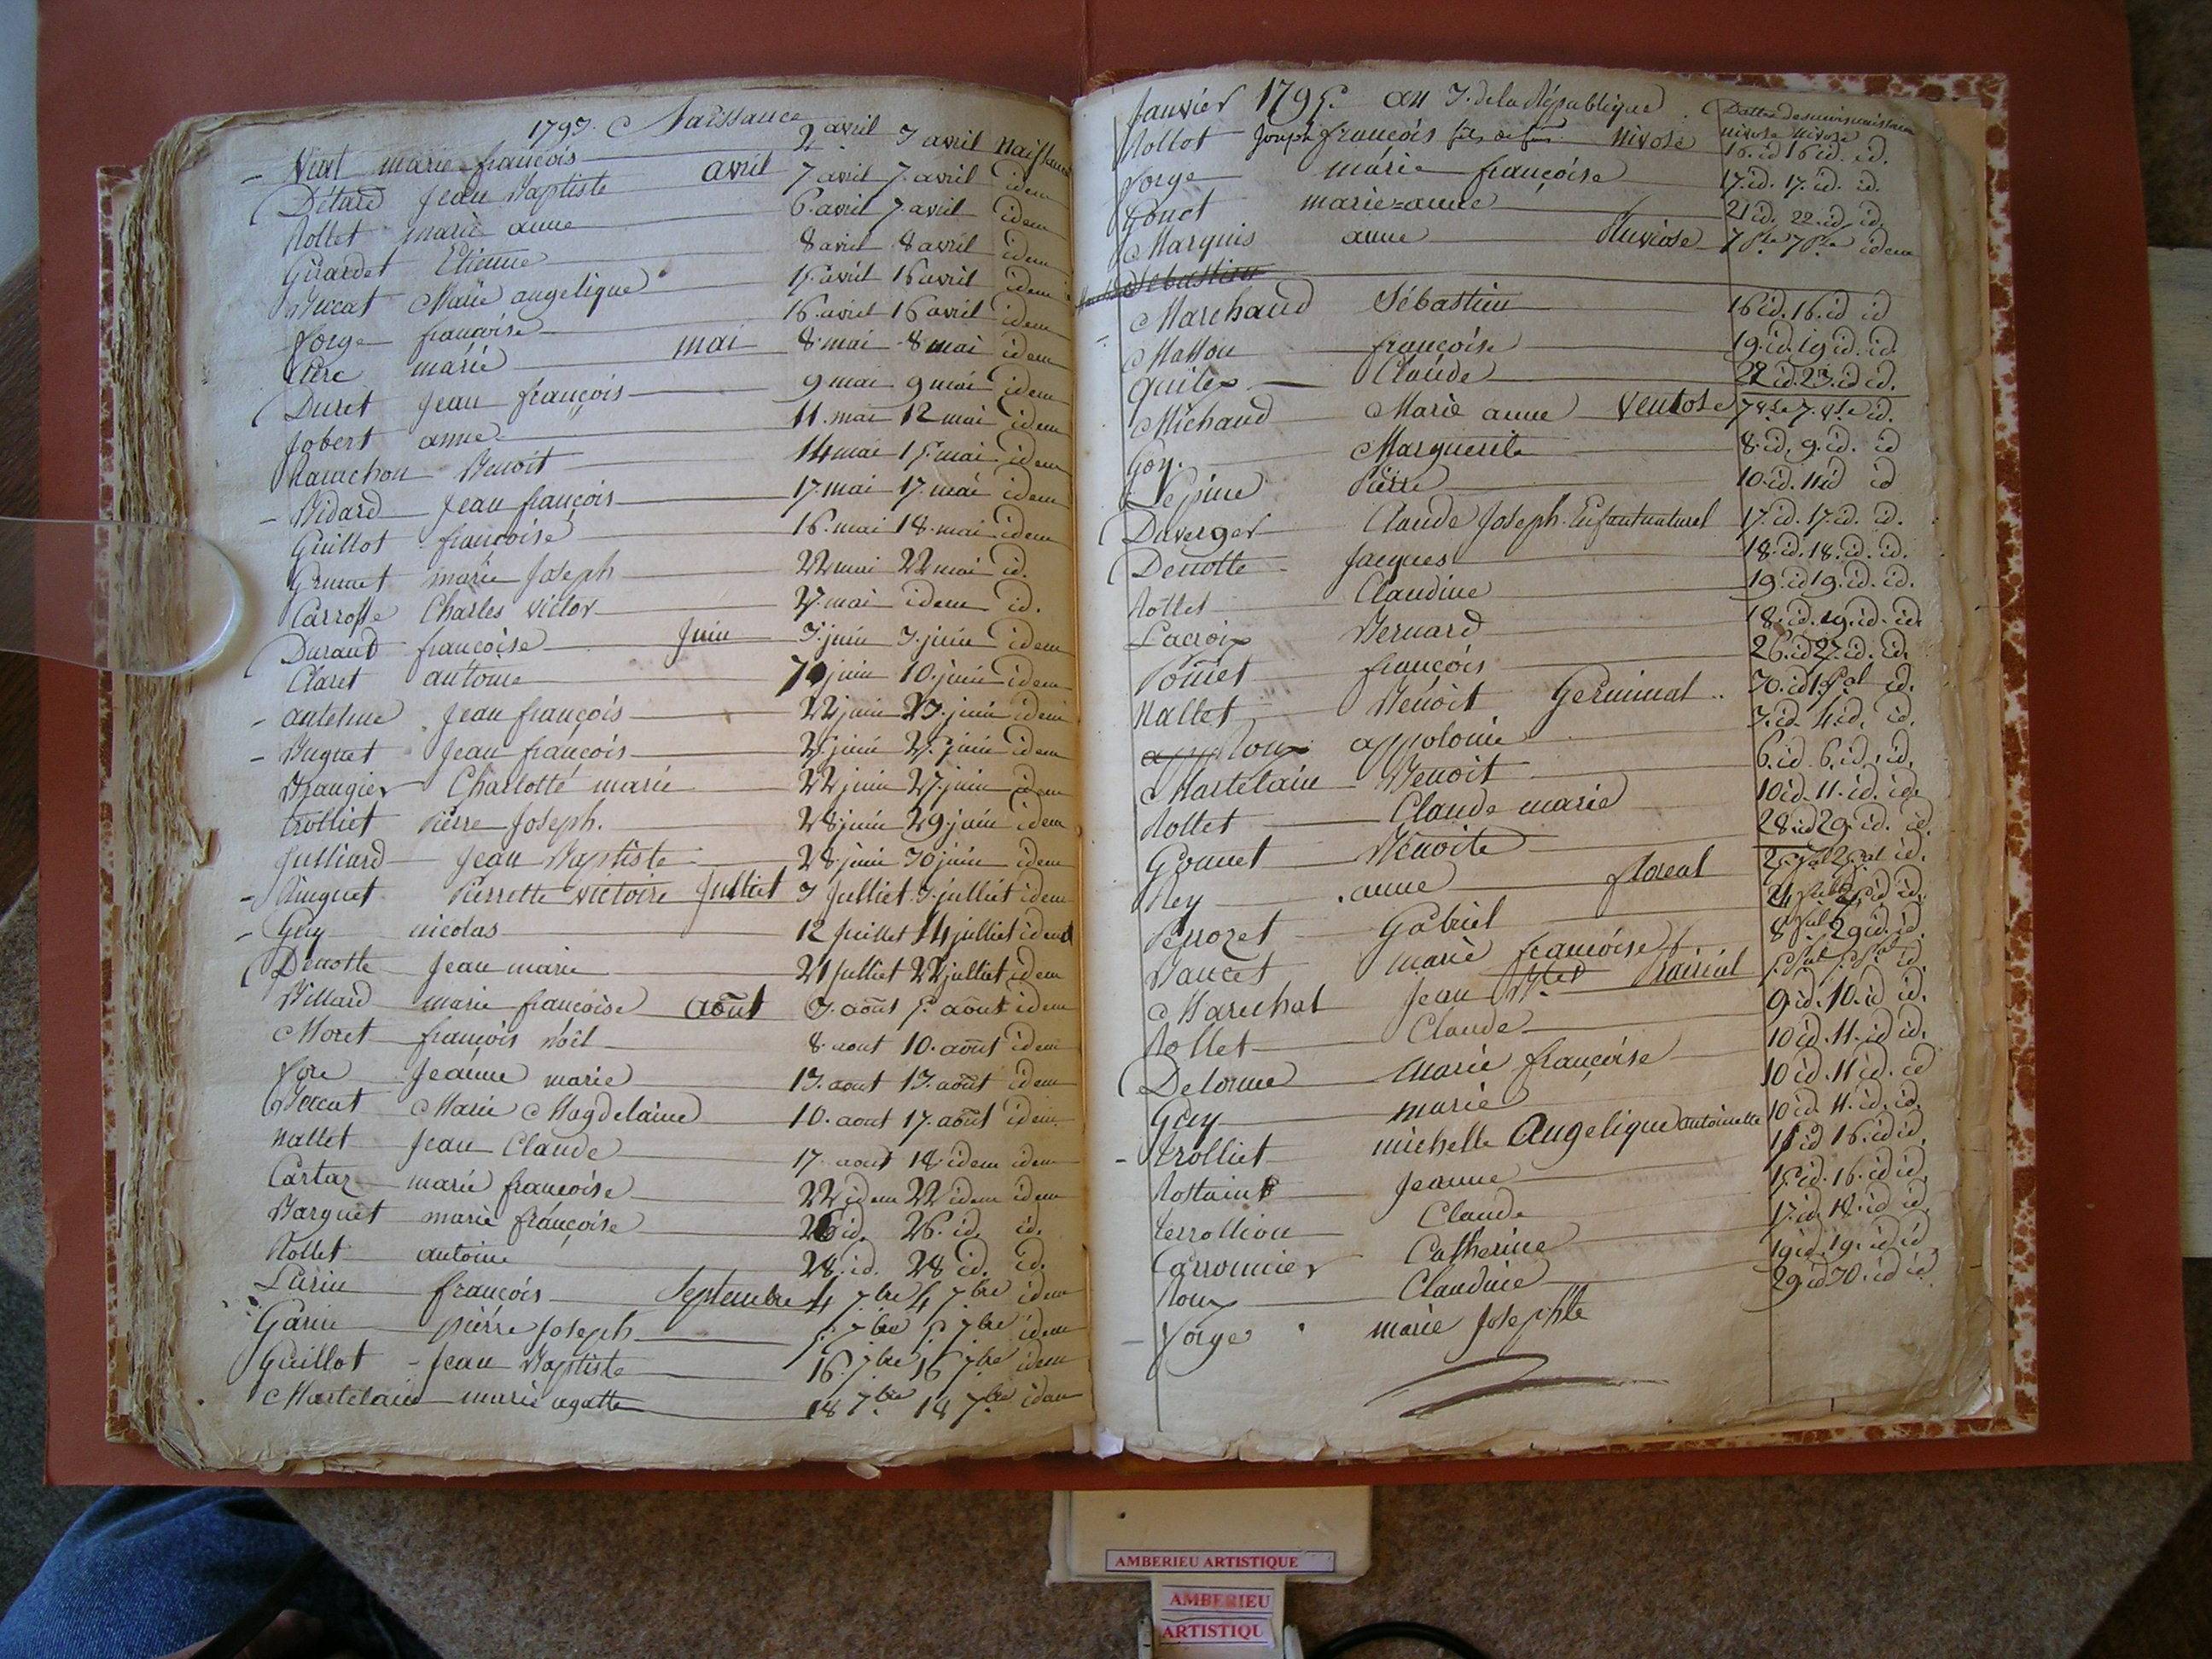 1793. Naissance
Viut marie françois 2 avril 3 avril Naissance
Détard Jean Baptiste avril 7 avril 7. avril idem
Rollet marie anne 6. avril 7. avril idem
Girardet Etienne 8 avril 8 avril idem
Marie angelique 15. avril 16 avril idem
Forge françoise 16. avril 16 avril idem
marie mai 8. mai 8 mai idem
Duret Jean françois 9 mai 9 mai idem
Jobert anne 11. mai 12 mai idem
Benoit 14 mai 15. mai idem
Bidard Jean françois 17. mai 17. mai idem
Guillot françoise 16. mai 18. mai idem
Grumet marie Joseph 22 mai 22 mai id.
Carrosse Charles victor 27. mai idem id.
Durand françoise Juin 3. juin 3. juin idem
Claret antoine juin 10. juin idem
antelme Jean françois 22 juin 23. juin idem
Buguet Jean françois 25. juin 25. juin idem
Brangier Charlotte marie 22 juin 27. juin idem
trolliet Pierre Joseph. 28 juin 29. juin idem
Julliard Jean Baptiste 28. juin 30 juin idem
Pierrette victoire Julliet 3 Julliet 3. julliet idem
Guy nicolas 12 Juillet 14 julliet idem
Denotte Jean marie 21 Julliet 22 julliet idem
Billard marie françoise août 3. août 5. août idem
Moret françois noël 8. aout 10. août idem
Jeanne marie 13. aout 13. août idem
Marie Magdelaine 10. aout 17. août idem
Nallet Jean Claude 17. aout 18. idem idem
Cartaz marie françoise 22 idem 22 idem idem
Barguet marie françoise 26 id. 26. id. id.
Rollet antoine 28. id. 28 id. id.
Lurin françois Septembre 4 7.bre 4 7.bre idem
Garin pierre Joseph 5. 7.bre 5. 7.bre idem
Guillot Jean Baptiste 16. 7.bre 16 7.bre idem
Martelain marie agatte 18 7.bre 18 7.bre idem
Janvier 1795. an 3. de la République
Rollot Joseph françois fils de Nivose nivose nivose
Forge marie françoise 16. id 16 id. id.
Gonet marie=anne 17. id. 17. id. id.
Marquis anne Pluviose 21 id. 22. id. id.
Sébastien
Marchaud Sébastien 16 id. 16. id id
Matton françoise 19. id. 19 id. id.
Quilex Claude 22 id. 23. id id.
Michaud Marie anne Ventose
Goy. Marguerite 8. id. 9. id. id
Lépine Pierre 10. id. 11 id id
Duverger Claude Joseph. Enfant naturel 17. id. 17. id. id.
Denotte Jacques 18. id. 18. id. id.
Rollet Claudine 19. id 19. id. id.
Lacroix Bernard 18. id. 19. id. id.
Pomet françois 26. id 27. id. id.
Nallet Benoit Germinal
appolonie 3. id. 4. id. id.
Martelain Benoit 6. id. 6. id. id.
Rollet Claude marie 10 id. 11. id. id.
Gonnet Benoite 28. id 29. id. id.
Rey anne floreal
Gabriel
Bancet marie françoise
Marechal Jean Bte Prairial
Rollet Claude 9. id. 10. id id.
Delorme marie françoise 10 id. 11. id id.
Guy marie 10 id. 11 id. id
trolliet michelle Angelique antoinette 10 id. 11. id. id.
Rostaint Jeanne 15 id 16. id id.
terrollion Claude 15. id. 16. id id.
Carronnier Catherine 17. id. 18. id id.
Roux Claudine 19 id. 19. id id
Forge marie Josephte 29. id 30. id id
AMBERIEU ARTISTIQUE
AMBERIEU
ARTISTIQU